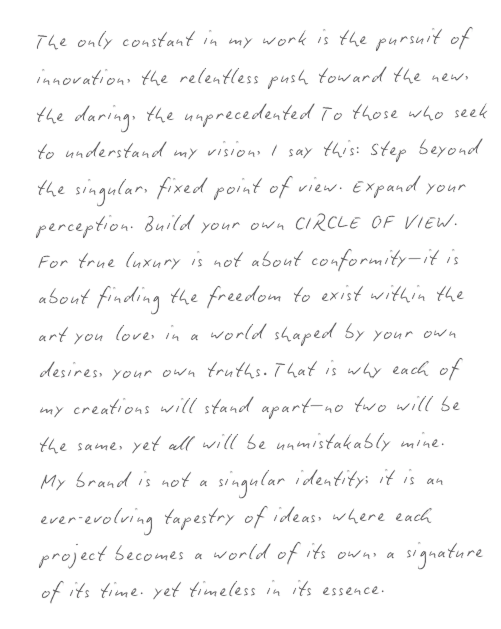 The only constant in my work is the pursuit of
innovation, the relentless push toward the new,
the daring, the unprecedented To those who seek
to understand my vision, I say this: Step beyond
the singular, fixed point of view. Expand your
perception. Build your own CIRCLE OF VIEW.
For true luxury is not about conformity—it is
about finding the freedom to exist within the
art you love, in a world shaped by your own
desires, your own truths. That is why each of
my creations will stand apart—no two will be
the same, yet all will be unmistakably mine.
My brand is not a singular identity; it is an
ever-evolving tapestry of ideas, where each
project becomes a world of its own, a signature
of its time. yet timeless in its essence.